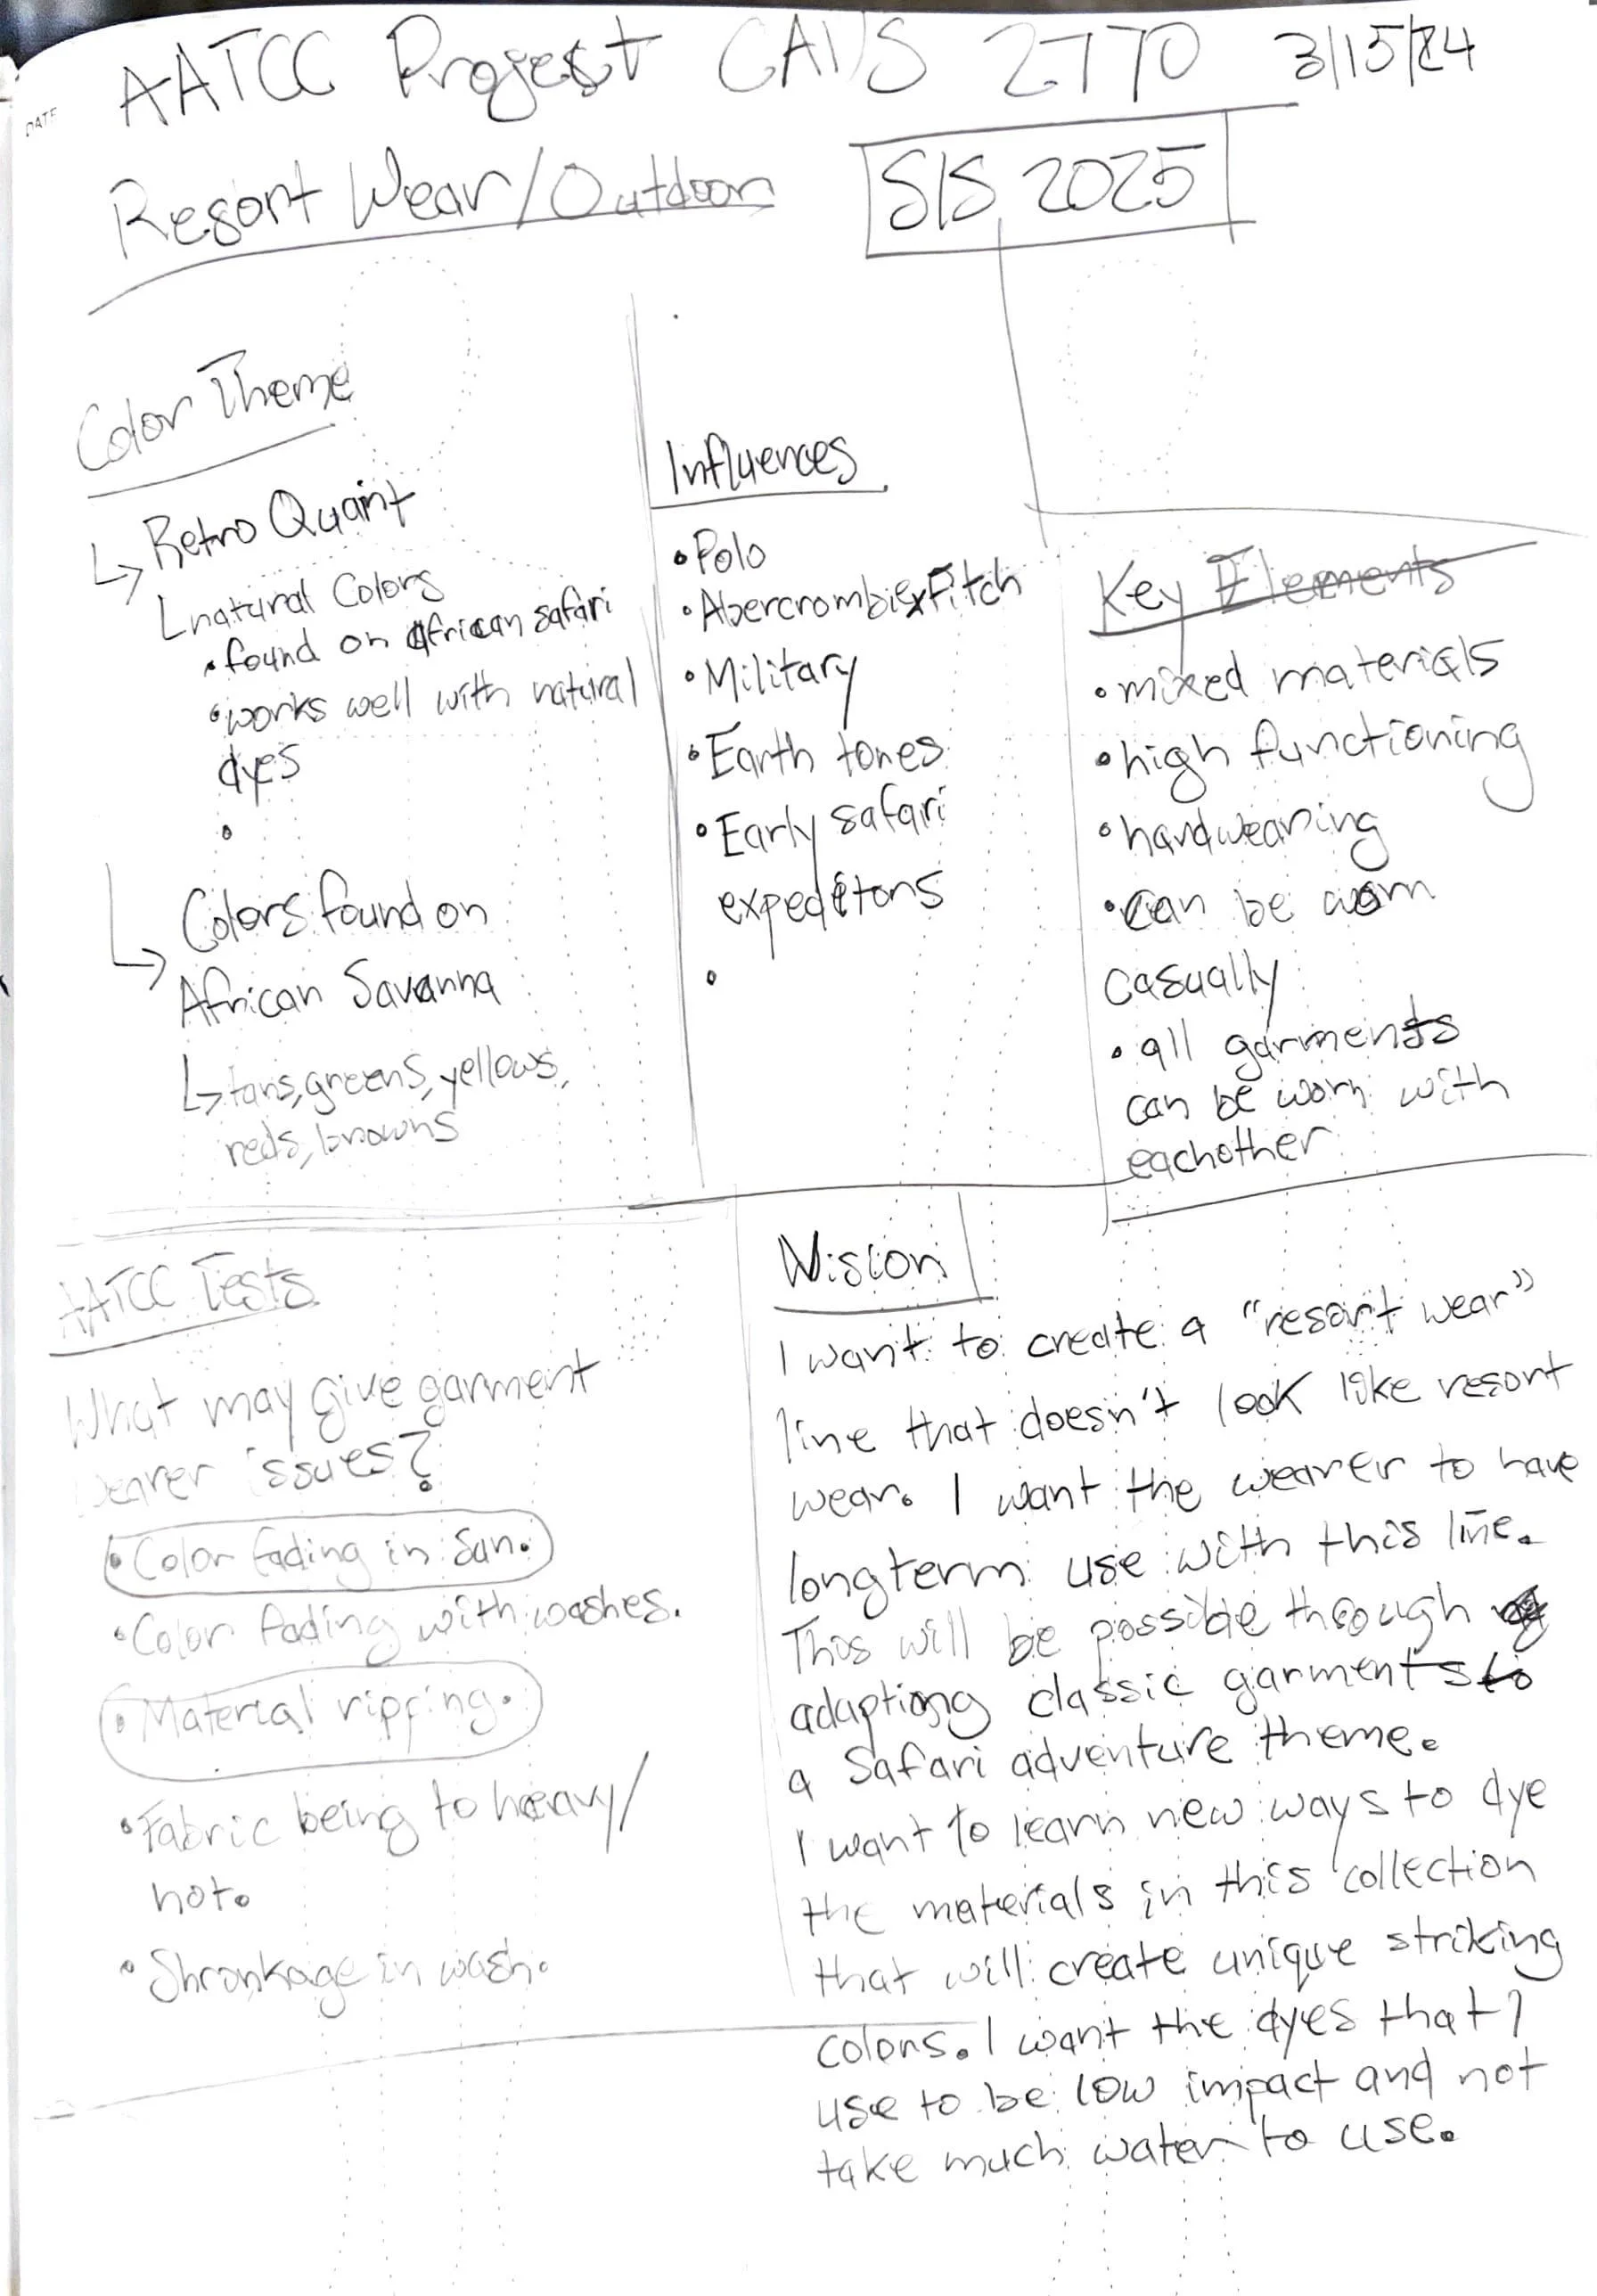 DATE
AATCC Project CAVS 2770 3/15/24
Resort Wear/Outdoor
S/S 2025
Color Theme
Retro Quaint
natural Colors
• found on African safari
• works well with natural
dyes
•
Colors found on
African Savanna
tans, greens, yellows,
reds, browns
Influences
• Polo
• Abercrombie x Fitch
• Military
• Earth tones
• Early safari
expeditons
•
Key Elements
• mixed materials
• high functioning
• hardwearing
• can be worn
casually
• all garments
can be worn with
eachother
AATCC Tests
What may give garment
wearer issues?
• Color fading in Sun.
• Color fading with washes.
• Material ripping.
• Fabric being to heavy/
hot.
• Shronkage in wash.
Vision
I want to create a "resort wear"
line that doesn't look like resort
wear. I want the wearer to have
longterm use with this line.
This will be possible through
adaptiong classic garments to
a Safari adventure theme.
I want to learn new ways to dye
the materials in this collection
that will create unique striking
colors. I want the dyes that I
use to be low impact and not
take much water to use.